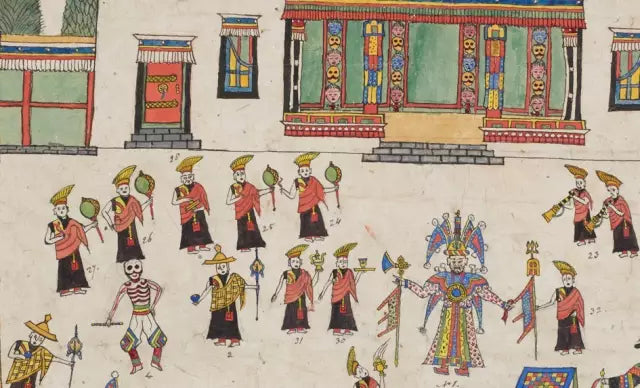 28
24
26
25
23
27
32
31
30
2
4